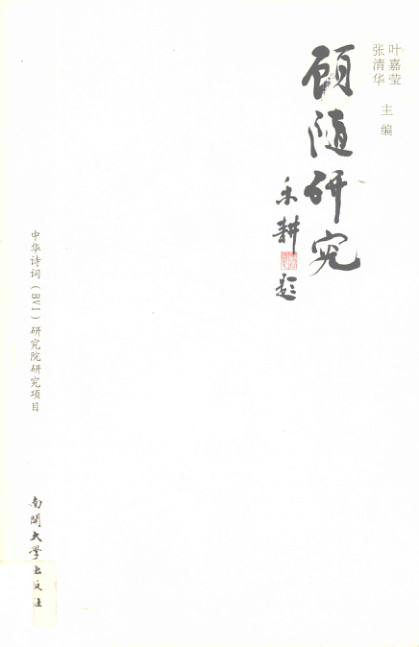 叶嘉莹
张清华
主编
顾随研究
禾耕
题
中华诗词（BVI）研究院研究项目
南開大学出版社